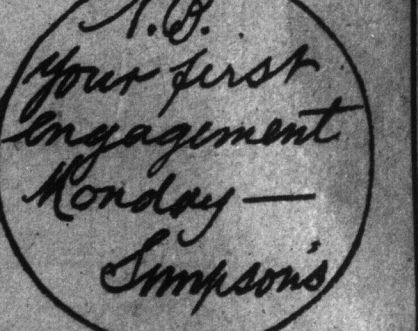 N.B.
Your first
engagement
Monday —
Simpson's